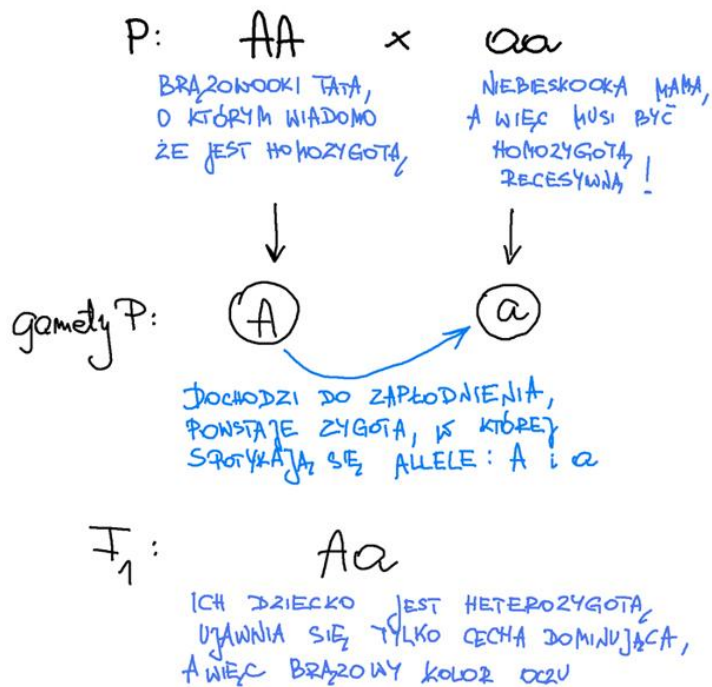 P: AA × aa
BRĄZOWOOKI TATA,
O KTÓRYM WIADOMO
ŻE JEST HOMOZYGOTĄ
NIEBIESKOOKA MAMA,
A WIĘC MUSI BYĆ
HOMOZYGOTĄ
RECESYWNĄ!
gamety P: A a
DOCHODZI DO ZAPŁODNIENIA,
POWSTAJE ZYGOTA, W KTÓREJ
SPOTYKAJĄ SIĘ ALLELE: A i a
F1: Aa
ICH DZIECKO JEST HETEROZYGOTĄ,
UJAWNIA SIĘ TYLKO CECHA DOMINUJĄCA,
A WIĘC BRĄZOWY KOLOR OCZU